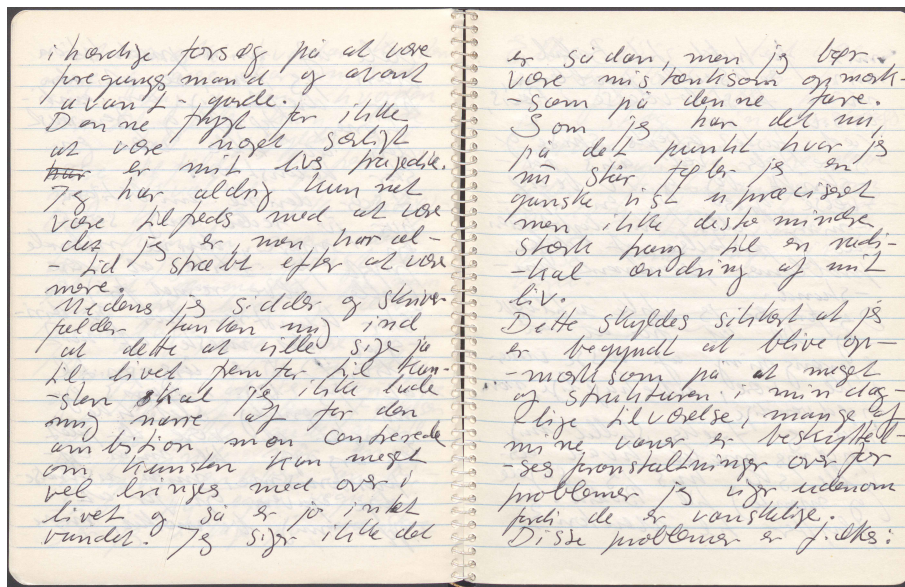 ihærdige forsøg på at være
foregangsmand og avant
avant-garde.
Denne frygt for ikke
at være noget særligt
har er mit livs tragedie.
Jeg har aldrig kunnet
være tilfreds med at være
det jeg er men har al-
-tid stræbt efter at være
mere.
Medens jeg sidder og skriver
falder tanken mig ind
at dette at ville sige ja
til livet frem for til kun-
-sten skal jeg ikke lade
mig narre af for den
ambition man centrerede
om kunsten kan meget
vel bringes med over i
livet og så er jo intet
vundet. Jeg siger ikke det
er sådan, men jeg bør
være mistænksom opmærk-
-som på denne fare.
Som jeg har det nu,
på det punkt hvor jeg
nu står føler jeg en
ganske vist upræciseret
men ikke desto mindre
stærk trang til en radi-
-kal ændring af mit
liv.
Dette skyldes sikkert at jeg
er begyndt at blive op-
-mærksom på at meget
af strukturen i min dag-
-lige tilværelse, mange af
mine vaner er beskyttel-
-ses foranstaltninger over for
problemer jeg viger udenom
fordi de er vanskelige.
Disse problemer er f.eks: